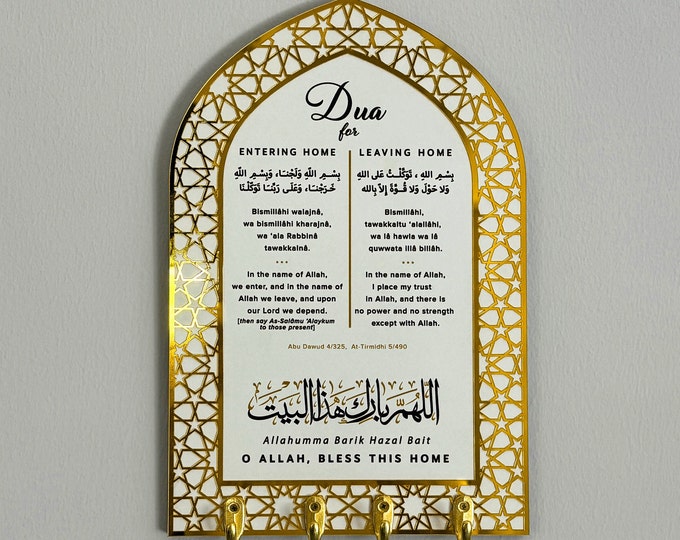 Dua
for
ENTERING HOME
بِسْمِ اللّٰهِ وَلَجْنَـا، وَبِسْمِ اللّٰهِ
خَرَجْنَـا، وَعَلَى رَبِّنَا تَوَكَّلْنَا
Bismillâhi walajnâ,
wa bismillâhi kharajnâ,
wa ‘ala Rabbinâ
tawakkalnâ.
***
In the name of Allah,
we enter, and in the name of
Allah we leave, and upon
our Lord we depend.
[then say As-Salâmu ‘Alaykum
to those present]
LEAVING HOME
بِسْمِ اللهِ ، تَوَكَّلْتُ عَلَى اللهِ
وَلا حَوْلَ وَلا قُـوَّةَ إِلاَّ بِالله
Bismillâhi,
tawakkaltu ‘alallâhi,
wa lâ hawla wa lâ
quwwata illâ billâh.
***
In the name of Allah,
I place my trust
in Allah, and there is
no power and no strength
except with Allah.
Abu Dawud 4/325, At-Tirmidhi 5/490
اللهُمَّ بَارِكْ هَذَا البَيْتَ
Allahumma Barik Hazal Bait
O ALLAH, BLESS THIS HOME